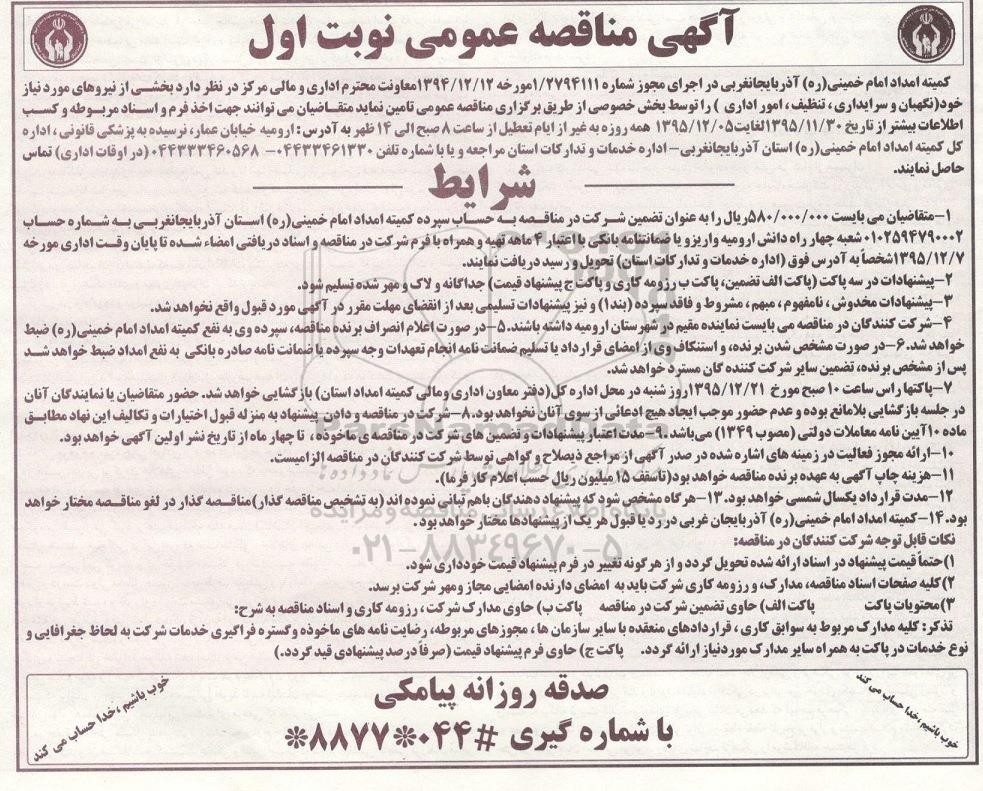 آگهی مناقصه عمومی نوبت اول
کمیته امداد امام خمینی(ره) آذربایجانغربی در اجرای مجوز شماره ۱/۲۷۹۴۱۱۱مورخه ۱۳۹۴/۱۲/۱۲معاونت محترم اداری و مالی مرکز در نظر دارد بخشی از نیروهای مورد نیاز
خود(نگهبان و سرایداری ، تنظیف ، امور اداری ) را توسط بخش خصوصی از طریق برگزاری مناقصه عمومی تامین نماید متقاضیان می توانند جهت اخذ فرم و اسناد مربوطه و کسب
اطلاعات بیشتر از تاریخ ۱۳۹۵/۱۱/۳۰لغایت۱۳۹۵/۱۲/۰۵ همه روزه به غیر از ایام تعطیل از ساعت ۸ صبح الی ۱۴ ظهر به آدرس : ارومیه خیابان عمار، نرسیده به پزشکی قانونی ، اداره
کل کمیته امداد امام خمینی(ره) استان آذربایجانغربی– اداره خدمات و تدارکات استان مراجعه و یا با شماره تلفن ۰۴۴۳۳۴۶۱۳۳۰- ۰۴۴۳۳۴۶۰۵۶۸(در اوقات اداری) تماس
حاصل نمایند.
شرایط
۱–متقاضیان می بایست ۵۸۰/۰۰۰/۰۰۰ریال را به عنوان تضمین شرکت در مناقصه به حساب سپرده کمیته امداد امام خمینی(ره) استان آذربایجانغربی به شماره حساب
۰۱۰۲۵۹۴۷۹۰۰۰۲ شعبه چهار راه دانش ارومیه واریز و یا ضمانتنامه بانکی با اعتبار ۴ ماهه تهیه و همراه با فرم شرکت در مناقصه و اسناد دریافتی امضاء شده تا پایان وقت اداری مورخه
۱۳۹۵/۱۲/۷شخصاً به آدرس فوق (اداره خدمات و تدارکات استان) تحویل و رسید دریافت نمایند.
۲–پیشنهادات در سه پاکت (پاکت الف تضمین، پاکت ب رزومه کاری و پاکت ج پیشنهاد قیمت) جداگانه و لاک و مهر شده تسلیم شود.
۳–پیشنهادات مخدوش ، نامفهوم ، مبهم ، مشروط و فاقد سپرده (بند۱) و نیز پیشنهادات تسلیمی بعد از انقضای مهلت مقرر در آگهی مورد قبول واقع نخواهد شد.
۴–شرکت کنندگان در مناقصه می بایست نماینده مقیم در شهرستان ارومیه داشته باشند. ۵–در صورت اعلام انصراف برنده مناقصه، سپرده وی به نفع کمیته امداد امام خمینی(ره) ضبط
خواهد شد. ۶–در صورت مشخص شدن برنده، و استنکاف وی از امضای قرارداد یا تسلیم ضمانت نامه انجام تعهدات وجه سپرده یا ضمانت نامه صادره بانکی به نفع امداد ضبط خواهد شد
پس از مشخص برنده، تضمین سایر شرکت کننده گان مسترد خواهد شد.
۷–پاکتها راس ساعت ۱۰ صبح مورخ ۱۳۹۵/۱۲/۲۱روز شنبه در محل اداره کل(دفتر معاون اداری ومالی کمیته امداد استان) بازگشایی خواهد شد. حضور متقاضیان یا نمایندگان آنان
در جلسه بازگشایی بلامانع بوده و عدم حضور موجب ایجاد هیچ ادعائی از سوی آنان نخواهد بود.۸–شرکت در مناقصه و دادن پیشنهاد به منزله قبول اختیارات و تکالیف این نهاد مطابق
ماده ۱۰آیین نامه معاملات دولتی (مصوب ۱۳۴۹) می‌باشد.۹–مدت اعتبار پیشنهادات و تضمین های شرکت در مناقصه ی ماخوذه ، تا چهار ماه از تاریخ نشر اولین آگهی خواهد بود.
۱۰–ارائه مجوز فعالیت در زمینه های اشاره شده در صدر آگهی از مراجع ذیصلاح و گواهی توسط شرکت کنندگان در مناقصه الزامیست.
۱۱–هزینه چاپ آگهی به عهده برنده مناقصه خواهد بود(تاسقف ۱۵ میلیون ریال حسب اعلام کارفرما).
۱۲–مدت قرارداد یکسال شمسی خواهد بود. ۱۳–هرگاه مشخص شود که پیشنهاد دهندگان باهم تبانی نموده اند (به تشخیص مناقصه گذار)مناقصه گذار در لغو مناقصه مختار خواهد
بود.۱۴–کمیته امداد امام خمینی(ره) آذربایجان غربی در رد یا قبول هر یک از پیشنهادها مختار خواهد بود .
نکات قابل توجه شرکت کنندگان در مناقصه:
۱)حتماً قیمت پیشنهاد در اسناد ارائه شده تحویل گردد و از هرگونه تغییر در فرم پیشنهاد قیمت خودداری شود.
۲)کلیه صفحات اسناد مناقصه، مدارک، و رزومه کاری شرکت باید به امضای دارنده امضایی مجاز ومهر شرکت برسد.
۳)محتویات پاکت پاکت الف) حاوی تضمین شرکت در مناقصه پاکت ب) حاوی مدارک شرکت ، رزومه کاری و اسناد مناقصه به شرح:
تذکر: کلیه مدارک مربوط به سوابق کاری ، قراردادهای منعقده با سایر سازمان ها ، مجوزهای مربوطه، رضایت نامه های ماخوذه و گستره فراگیری خدمات شرکت به لحاظ جغرافیایی و
نوع خدمات در پاکت به همراه سایر مدارک موردنیاز ارائه گردد. پاکت ج) حاوی فرم پیشنهاد قیمت (صرفاً درصد پیشنهادی قید گردد.)
صدقه روزانه پیامکی
با شماره گیری #۰۴۴*۸۸۷۷*
خوب باشیم ،خدا حساب می کند
خوب باشیم ،خدا حساب می کند
ParsNamadData
پایگاه اطلاع رسانی مناقصه و مزایده
۰۲۱-۸۸۳۴۹۶۷۰-۵